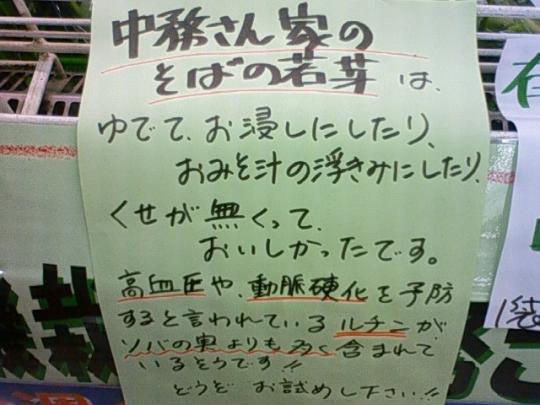 中務さん家の
そばの若芽は、
ゆでて、お浸しにしたり、
おみそ汁の浮きみにしたり、
くせが無くって、
おいしかったです。
高血圧や、動脈硬化を予防
すると言われているルチンが、
ソバの実よりも多く含まれて
いるそうです!!
どうぞ お試め し下さい!!